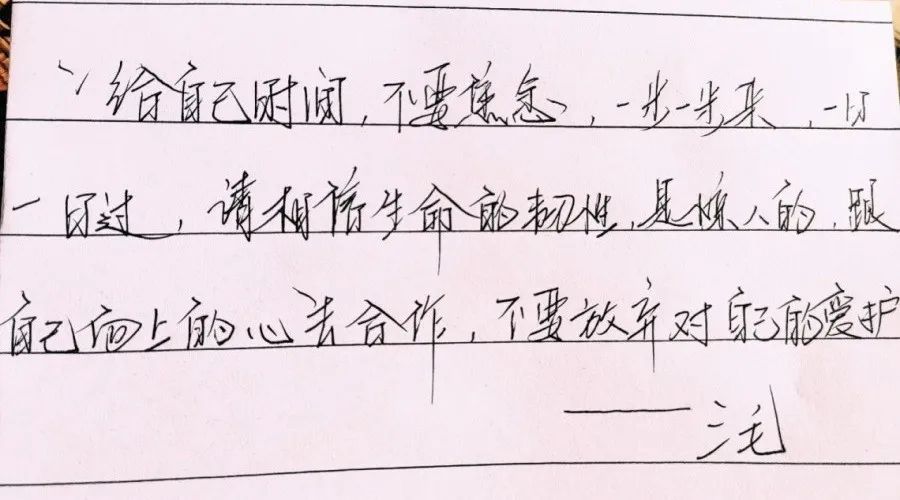 “给自己时间,不要焦急,一步一步来,一日
一日过,请相信生命的韧性,是惊人的,跟
自己向上的心去合作,不要放弃对自己的爱护
——三毛